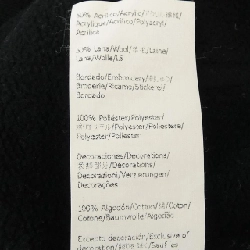 50% Acrílico/Acrylic/
Acrylique/Acrilico/Polyacryl/
Acrílico
50% Lana/Wool/羊毛/Laine/
Lana/Wolle/Lã
Bordado/Embroidery/
Broderie/Ricamo/Stickerei/
Bordado
100% Poliéster/Polyester/
Polyester/Poliestere/
Polyester/Poliéster
Decoraciones/Decorations/
Décorations/
Decorazioni/Verzierungen/
Decorações
100% Algodón/Cotton/棉/Coton/
Cotone/Baumwolle/Algodão
Excepto decoración/Exclusive of
decoration/